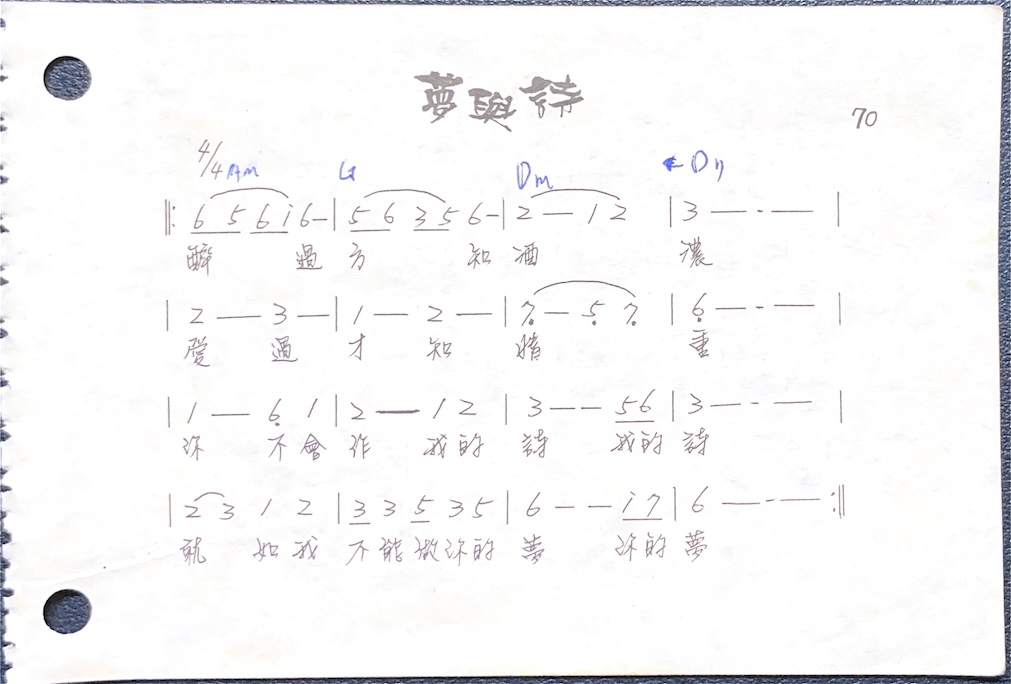 夢與詩
70
4/4 Am G Dm
‖: 6 5 6 i 6 – | 5 6 3 5 6 – | 2 — 1 2 | 3 — - — |
醉 過 方 知 酒 濃
| 2 — 3 — | 1 — 2 — | 7̣ — 5̣ 7̣ | 6̣ — - — |
愛 過 才 知 情 重
| 1 — 6̣ 1 | 2 — 1 2 | 3 — — 5 6 | 3 — - — |
你 不 會 作 我 的 詩 我 的 詩
| 2 3 1 2 | 3 3 5 3 5 | 6 — — i 7 | 6 — - — :‖
就 如 我 不 能 做 你 的 夢 你 的 夢